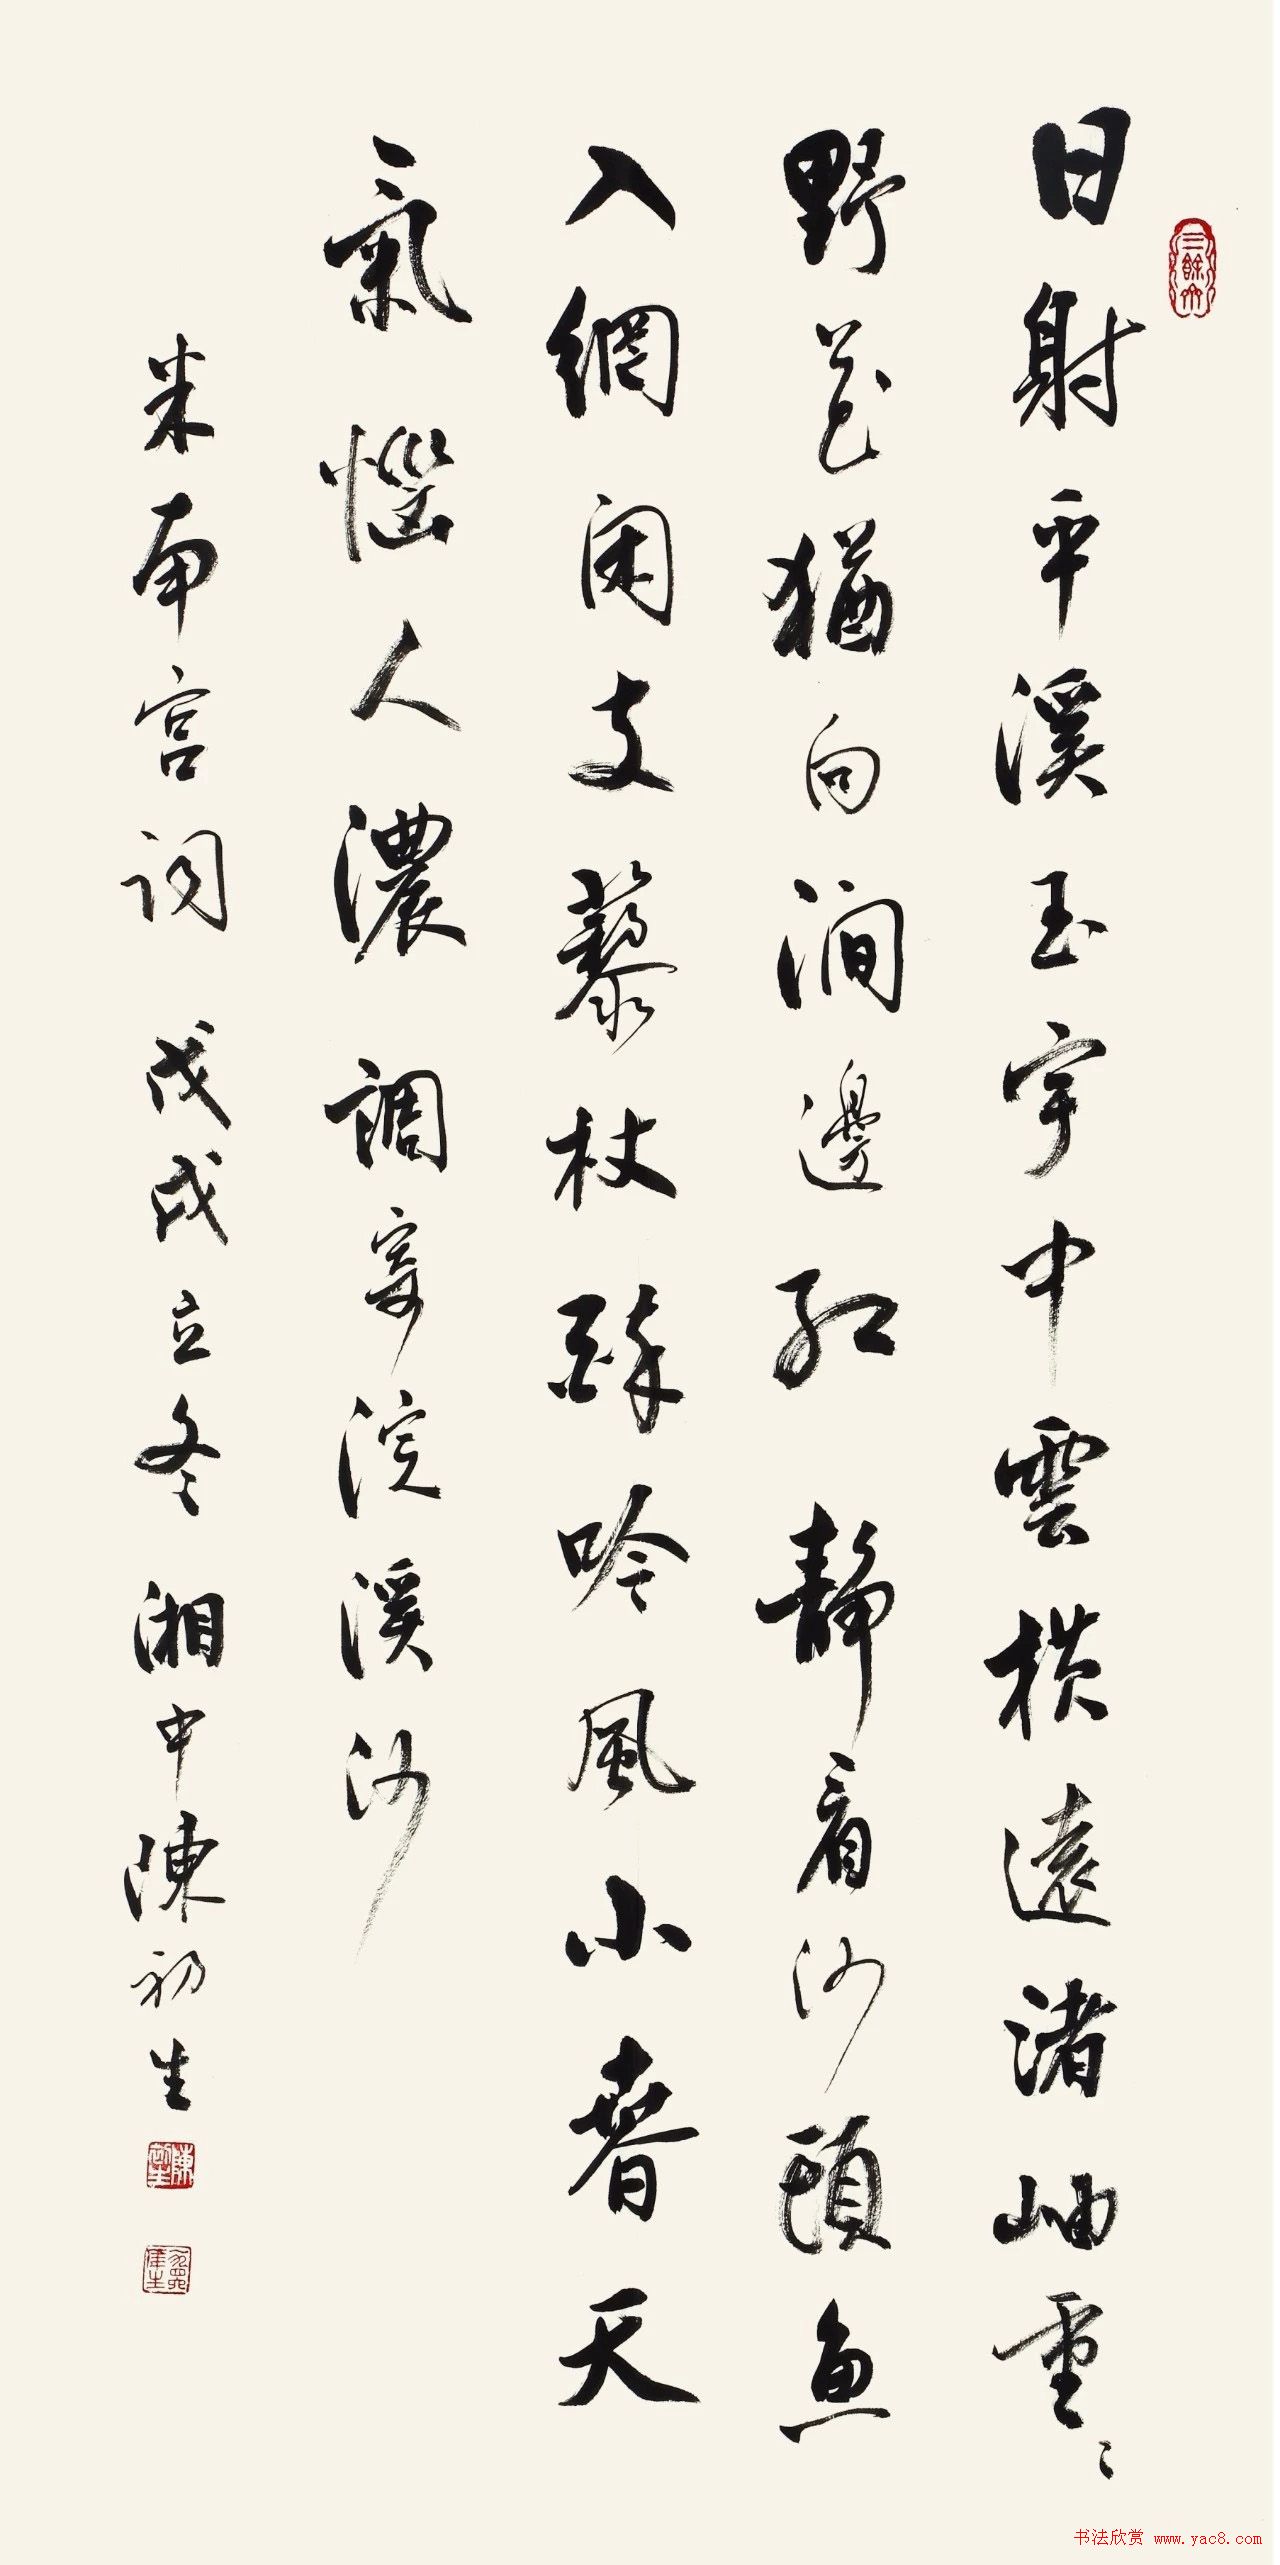 三餘齋
日射平溪玉宇中雲橫遠渚岫重〻
野花猶向澗邊紅靜看沙頭魚
入網閑支藜杖醉吟風小春天
氣惱人濃調寄浣溪沙
米南宮詞 戊戌立冬湘中陳初生
陳初生
书法欣赏 www.yac8.com